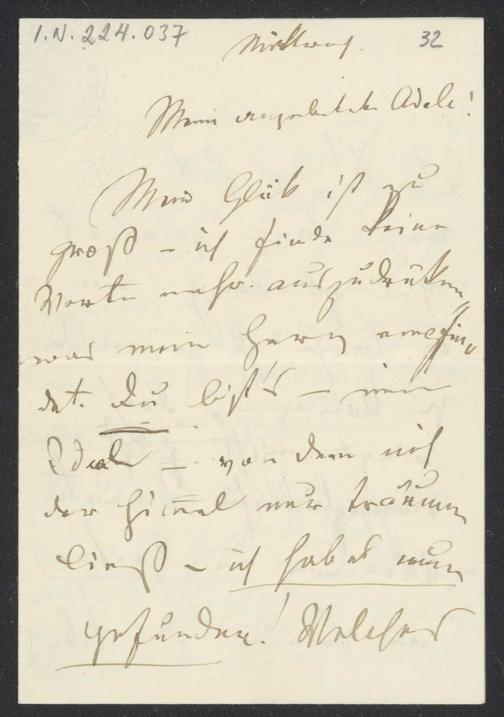 I.N. 224.037
32
Mittwoch.
Meine angebetete Adele!
Mein Glück ist zu
groß – ich finde keine
Worte mehr auszudrücken,
was mein Herz empfin-
det. Du bist's – mein
Ideal – von dem mich
der Himmel nur träumen
ließ – ich hab es nun
gefunden! Welches